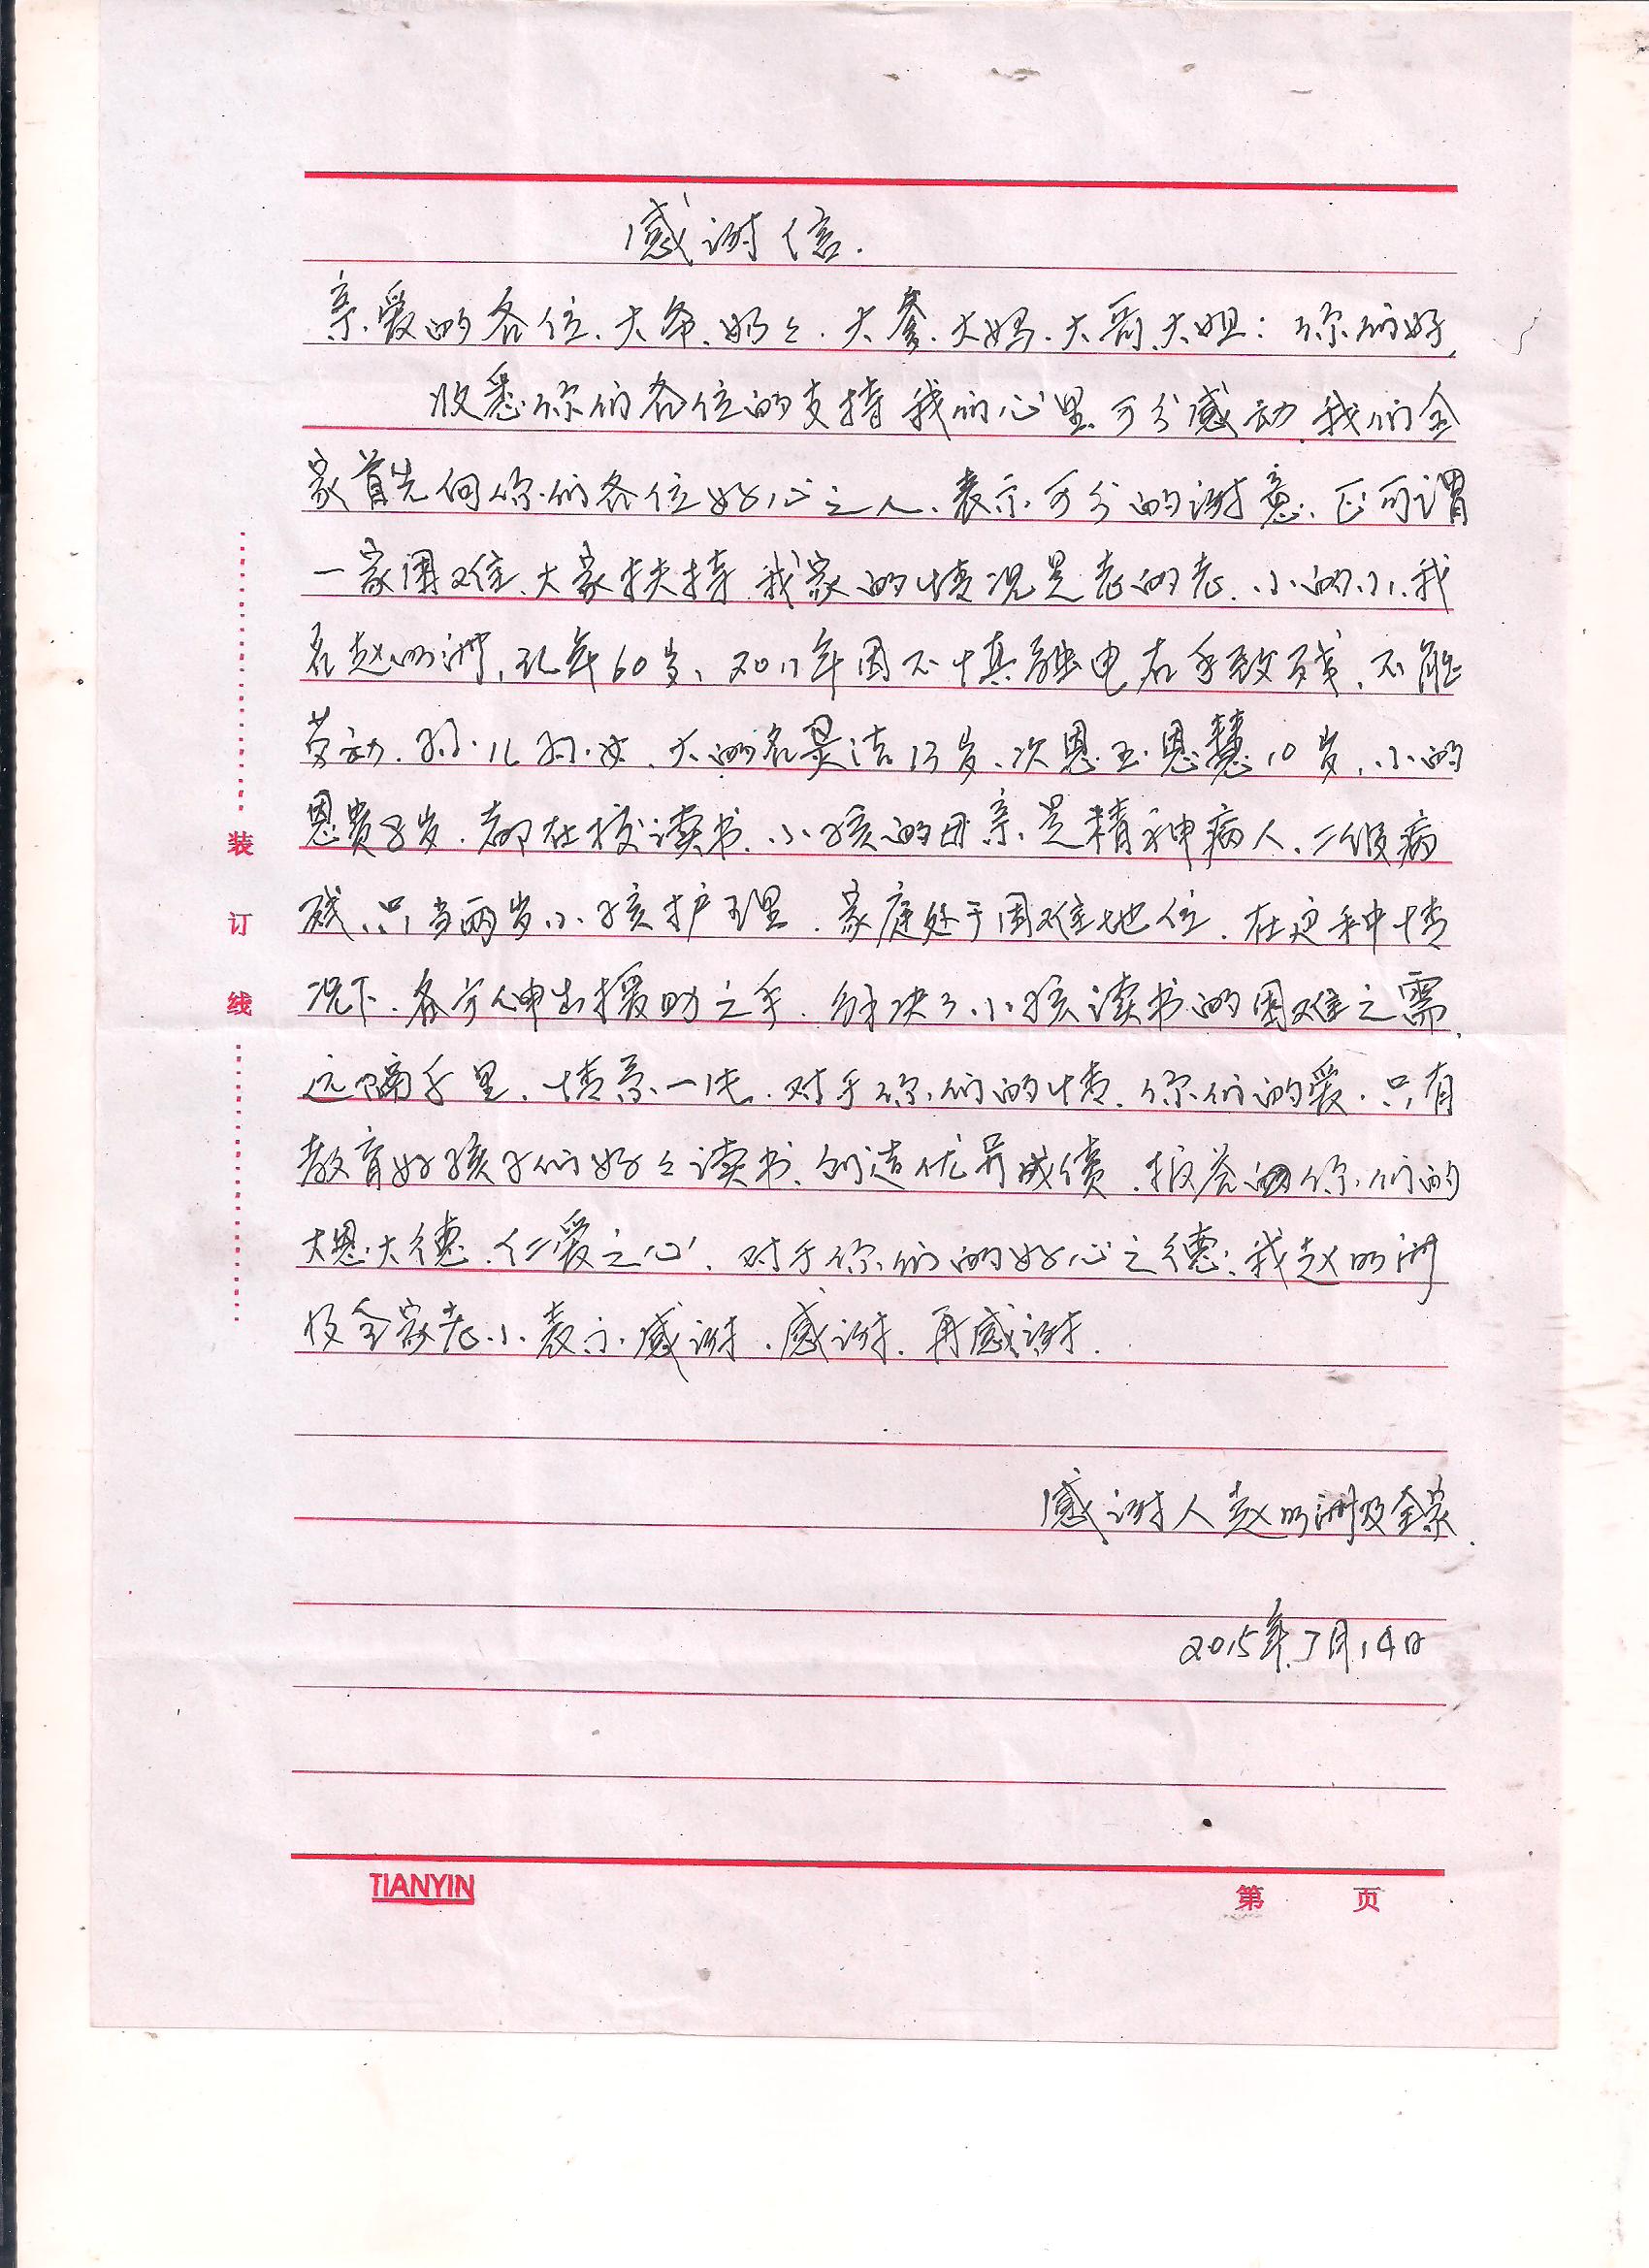 感谢信.
亲爱的各位、大爷、奶々、大爹、大妈、大哥、大姐：你们好,
收悉你们各位的支持我们心里万分感动,我们全
家首先向你们各位好心之人、表示万分的谢意、正可谓
一家困难、大家扶持,我家的情况是老的老、小的小、我
名赵明洲,现年60岁、2011年因不慎触电右手致残、不能
劳动、孙儿孙女、大的名灵洁13岁、次恩玉恩慧10岁、小的
恩贵8岁、都在校读书、小孩的母亲是精神病人、二级病
残、只当两岁小孩护理、家庭处于困难地位、在这种情
况下、各方伸出援助之手、解决了小孩读书的困难之需,
远隔千里、情系一线、对于你们的情、你们的爱、只有
教育好孩子们好々读书、创造优异成绩、报答 你们的
大恩大德、仁爱之心、对于你们的好心之德：我赵明洲
及全家老小表示感谢、感谢、再感谢.
感谢人赵明洲及全家.
2015年 月14日
装
订
线
TIANYIN
第 页